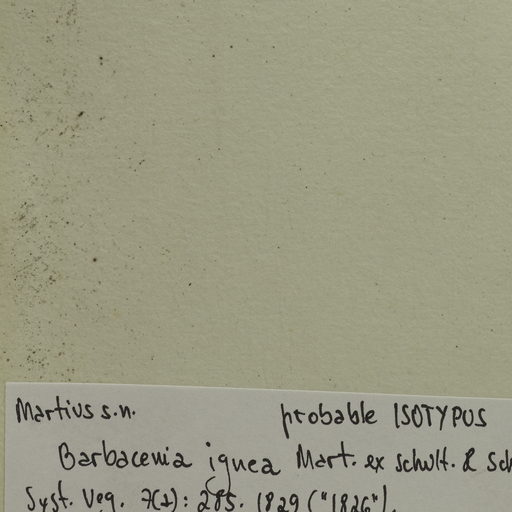 Martius s.n. probable ISOTYPUS
Barbacenia ignea Mart. ex Schult. & Sch
Syst. Veg. 7(2): 285. 1829 ("1826").